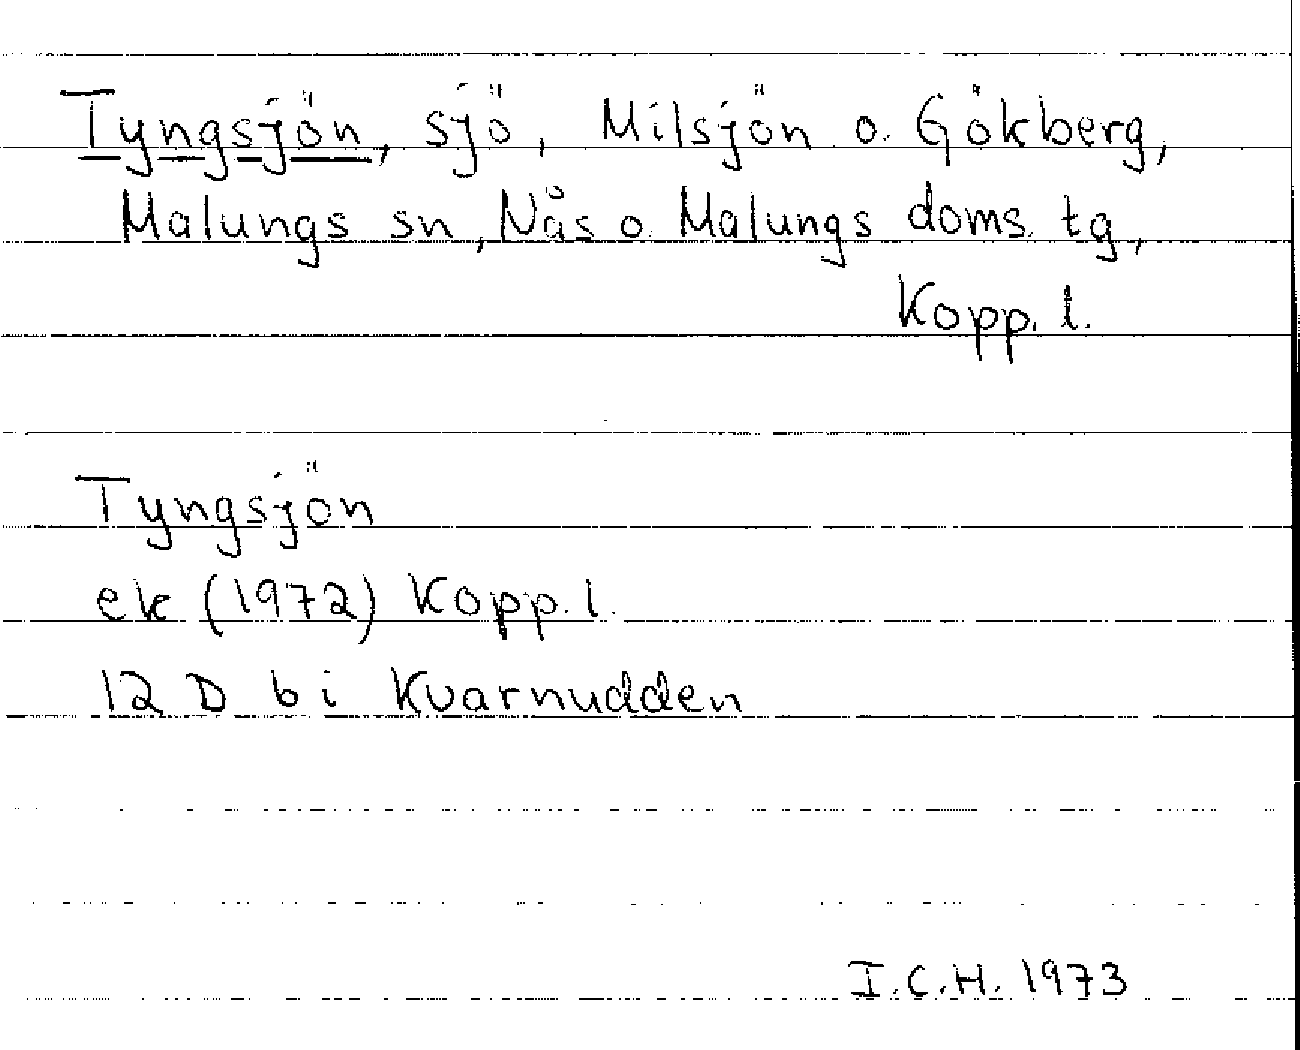 Tyngsjön, sjö, Milsjön o. Gökberg,
Malungs sn, Nås o. Malungs doms. tg,
Kopp. l.
Tyngsjön
ek (1972) Kopp. l.
12 D b i Kvarnudden
I.C.H. 1973